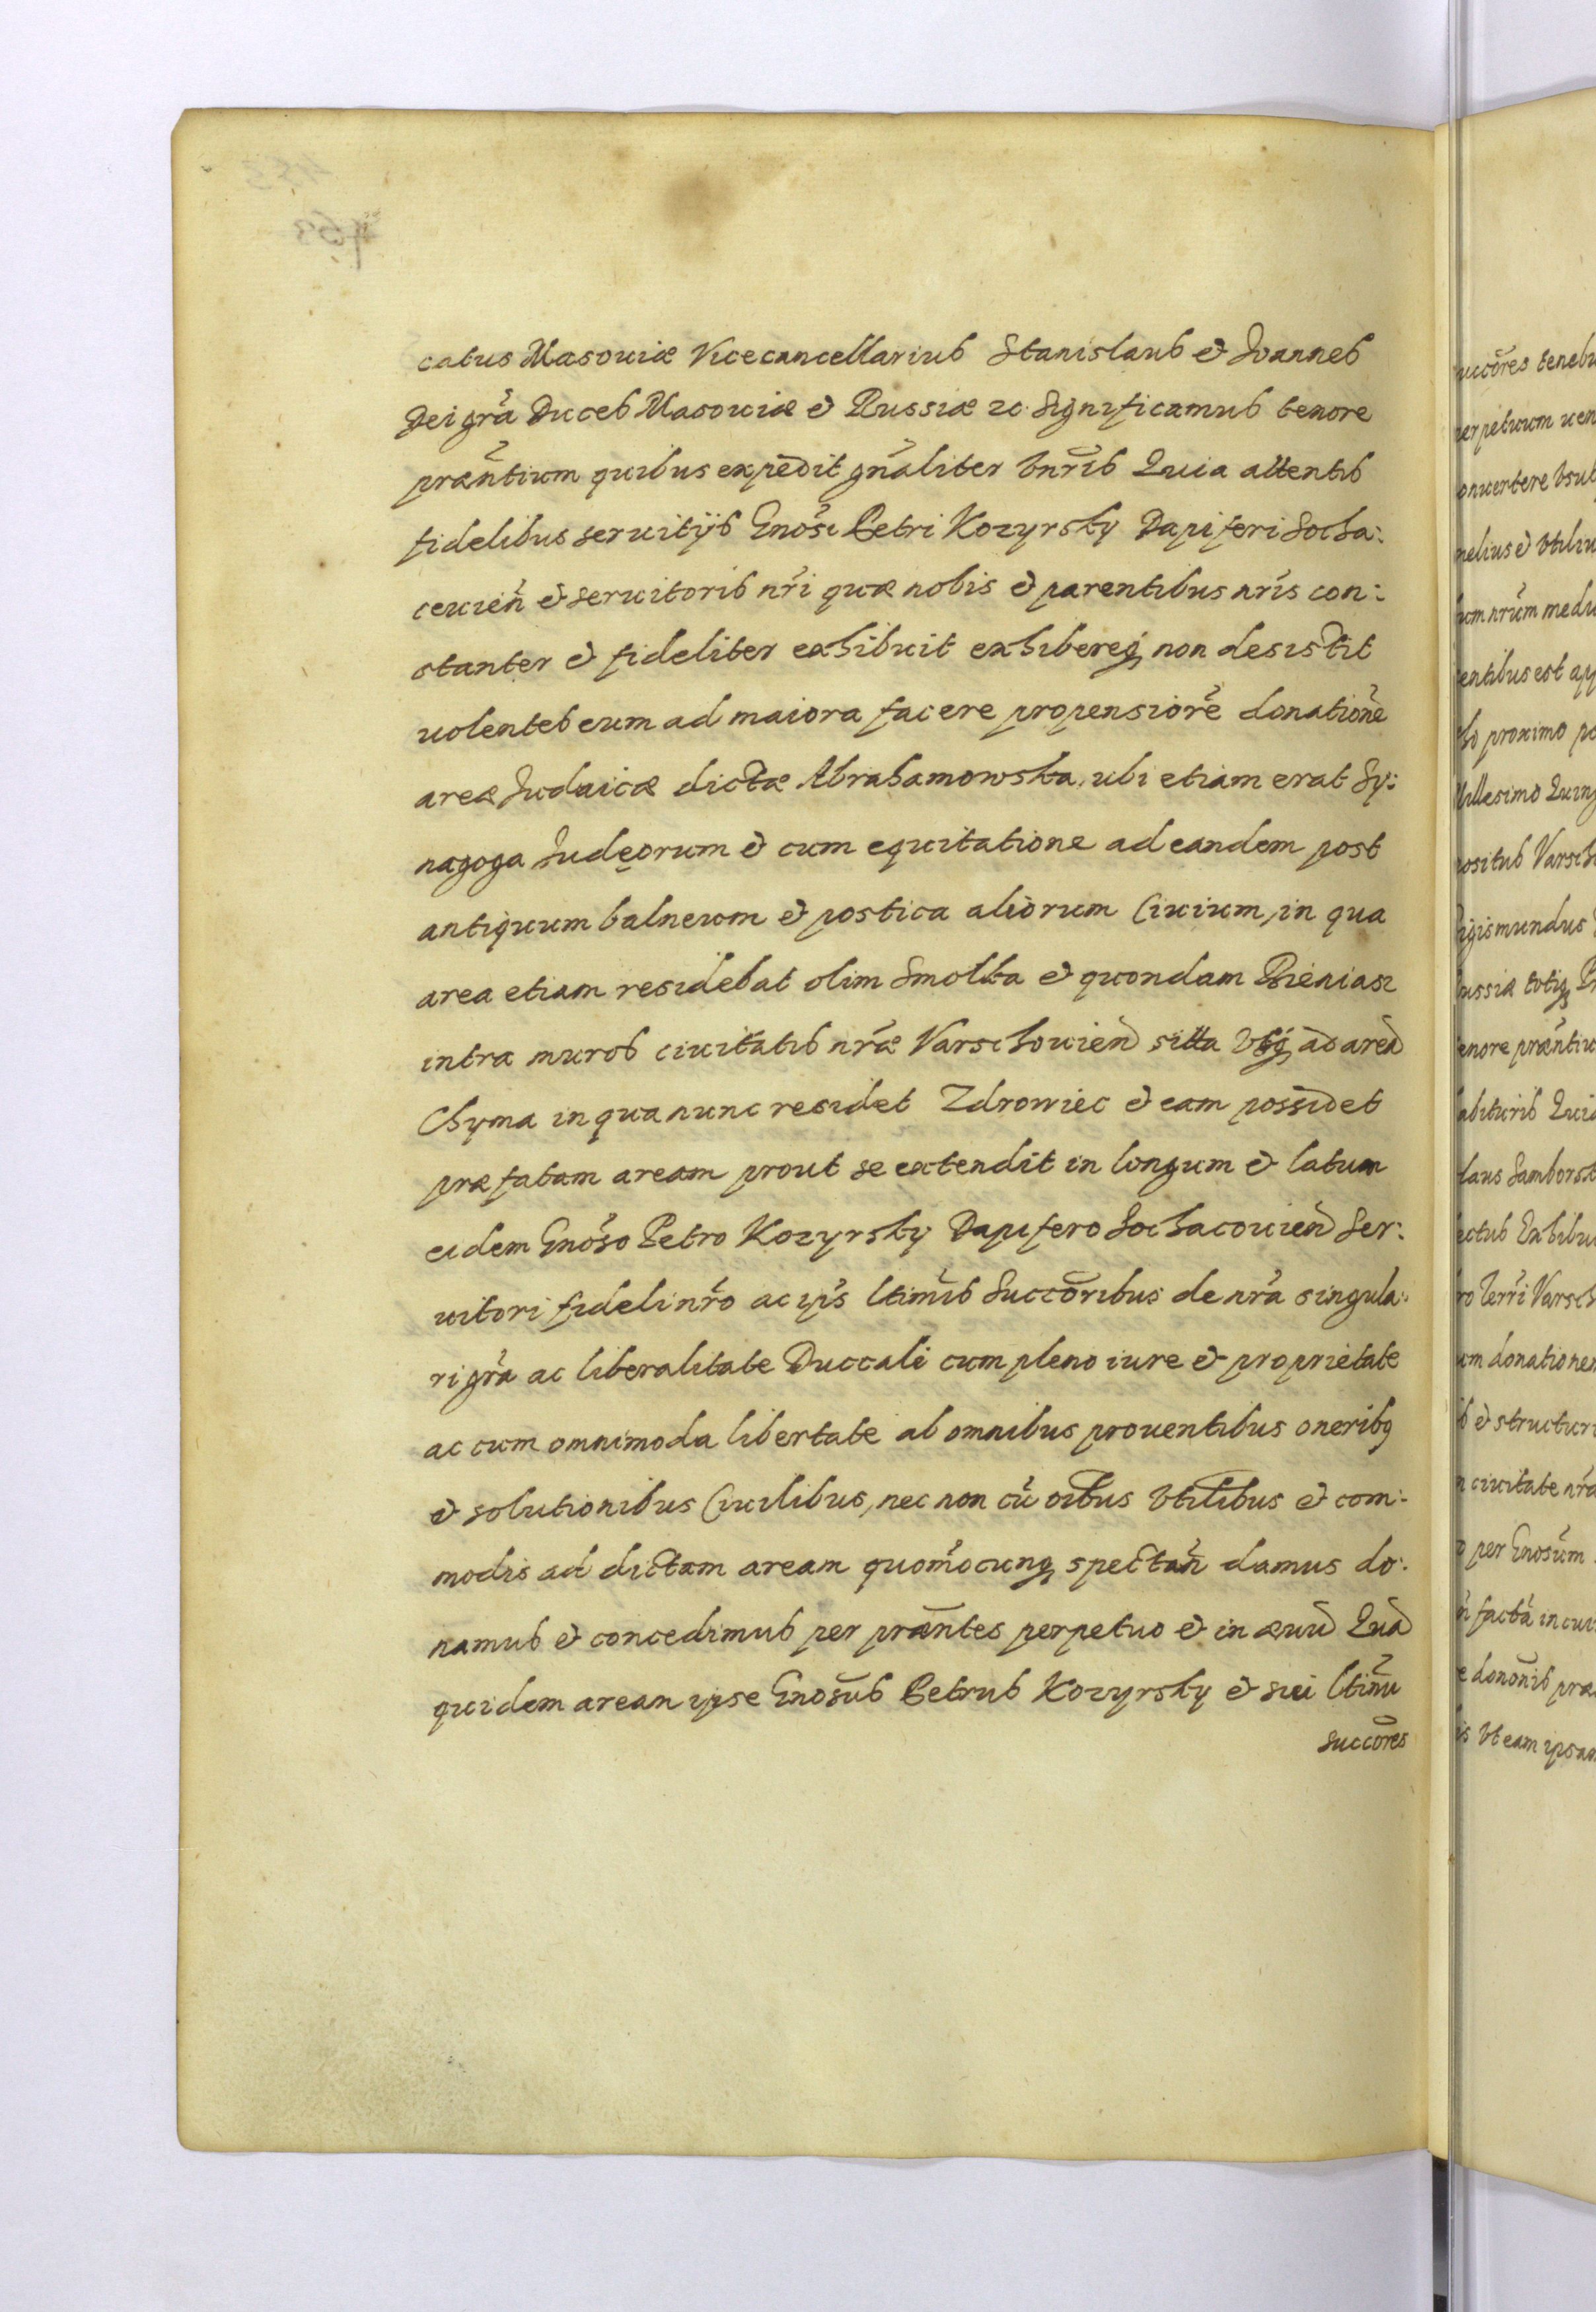 catus Masouiæ Vicecancellarius Stanislaus & Ioannes
Dei grã Duces Masouiæ & Russiæ ꝛc. Significamus tenore
præntium quibus expedit gñaliter vnris Quia attentis
fidelibus seruitijs Gnosi Petri Kozyrsky Dapiferi Socha:
ceuien̄ & seruitoris nr̃i quæ nobis & parentibus nr̃is con:
stanter & fideliter exhibuit exhibereq₃ non desistit
uolentes eum ad maiora facere propensiorẽ donationẽ
areæ Iudaicæ dictæ Abrahamowska, ubi etiam erat Sy:
nagoga Iudęorum & cum equitatione ad eandem post
antiquum balneum & postica aliorum Ciuium, in qua
area etiam residebat olim Smolka & quondam Bieniasz
intra muros ciuitatis nr̃æ Varschouien̄ sitta vsq₃ ad areā
Chyma in qua nunc residet Zdrowiec & eam possidet
præfatam aream prout se extendit in longum & latum
eidem Gnoso Petro Kozyrsky Dapifero Sochacouien̄ Ser:
uitori fideli nr̃o ac ip̃is ltimis Succõribus de nr̃a singula:
ri grã ac liberalitate Duccali cum pleno iure & proprietate
ac cum omnimoda libertate ab omnibus prouentibus oneribq₃
& solutionibus Ciuilibus, nec non cũ oibus vtilibus & com:
modis ad dictam aream quomõcunq₃ spectan̄ damus do:
namus & concedimus per præntes perpetuo & in æuū Quā
quidem aream ipse Gnosus Petrus Kozyrsky & sui ltimi
succõres
uccõres tenebu
perpetuum uen
onuertere vsus
melius & vtiliu
um nr̃um medi
entibus est app
proximo po
Millesimo Quing
positus Varsch
Sigismundus
ussiæ totiq₃ Pr
enore præntiu
abituris Quia
laus Samborsk
ectus Exhibui
ro Terri Varsch
um donationem
& structuri
ciuitate nr̃a
per Gnosum
factā in cui
e donõnis præ
is vt eam ipsam